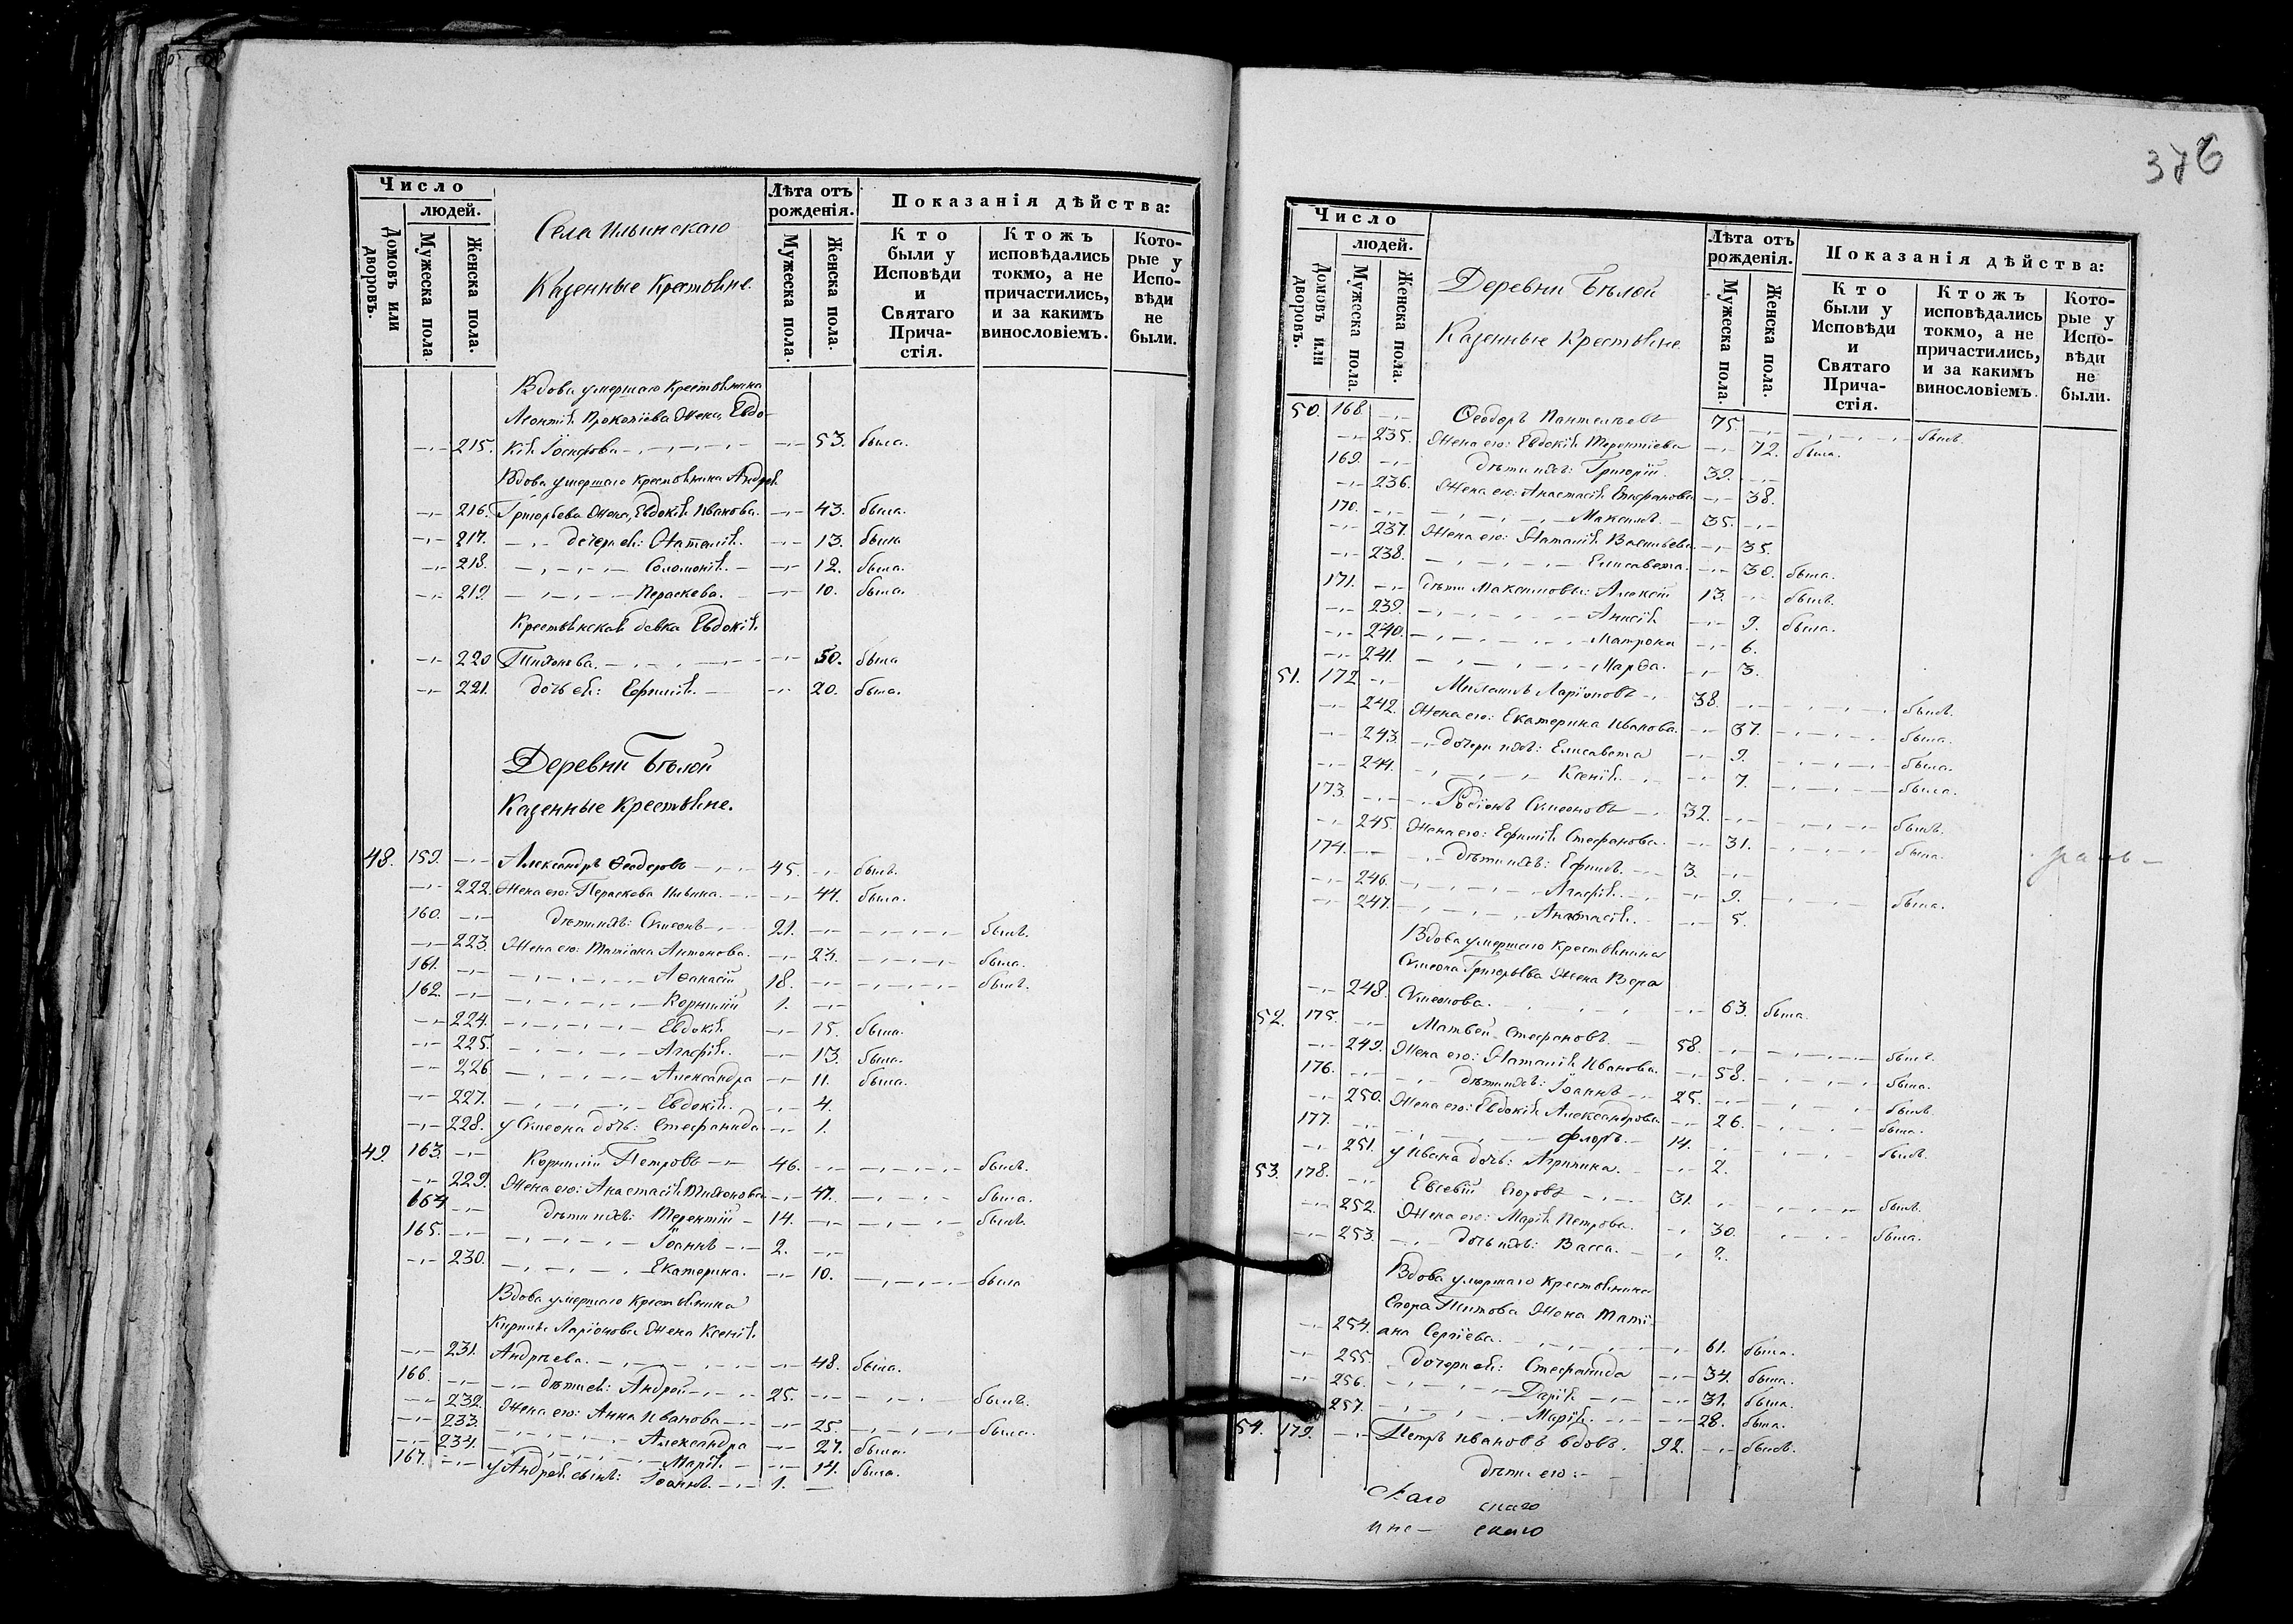 Число
людей.
Домовъ или дворовъ.
Мужеска пола
Женска пола.
Села Ильинскаго
Казенные Крестьяне.
Лѣта отъ рожденія.
Мужеска пола.
Женска пола.
Показанія дѣйства:
Кто были у Исповѣди и Святаго Причастія.
Ктожъ исповѣдались токмо, а не причастились, и за какимъ винословіемъ.
Которые у Исповѣди не были.
Вдова умершаго крестьянина
Леонтія Прокопіева жена, Евдо-
215. кія Іосифова 53. была.
Вдова умершаго крестьянина Андрея
216. Григорьева жена, Евдокія Иванова. 43. была.
217. дочери ея: Наталія. 13. была
218. Соломонія. 12. была.
219. Параскева. 10. была.
Крестьянская девка Евдокія
220 Тихонова. 50. была
221. дочь ея: Ефимія. 20. была.
Деревни Бѣлой
Казенные Крестьяне.
48. 159. Александръ Ѳеодоровъ 45. былъ.
222. Жена его: Параскева Ильина. 44. была.
160. дѣти ихъ: Симеонъ 21. былъ.
223. Жена его: Татіана Антонова. 23. была.
161. Аѳанасій 18. былъ.
162. Корнилій 1.
224. Евдокія 15. была.
225. Агафія. 13. была.
226 Александра 11. была.
227. Евдокія. 4.
228. у Симеона дочь: Стефанида 1.
49. 163. Корнилій Петровъ 46. былъ.
229. Жена его: Анастасія Тихонова 47. была.
164 дѣти ихъ: Терентій 14. былъ.
165. Іоаннъ 2.
230. Екатерина. 10. была
Вдова умершаго крестьянина
Кирилла Ларіонова жена Ксенія
231. Андреева. 48. была.
166. дѣти ея: Андрей 25. былъ.
232. Жена его: Анна Иванова 25. была.
233. Александра 27. была.
234. Марія 14. была.
167. у Андрея сынъ: Іоаннъ. 1.
376
Число
людей.
Домовъ или дворовъ.
Мужеска пола.
Женска пола.
Деревни Бѣлой
Казенные Крестьяне
Лѣта отъ рожденія.
Мужеска пола.
Женска пола.
Показанія дѣйства:
Кто были у Исповѣди и Святаго Причастія.
Ктожъ исповѣдались токмо, а не причастились, и за какимъ винословіемъ.
Которые у Исповѣди не были.
50. 168. Ѳеодоръ Пантелеевъ 75. былъ.
235. Жена его: Евдокія Терентіева 72. была.
169. дѣти ихъ: Григорій 39.
236. Жена его: Анастасія Стефанова 38.
170. Максимъ 35.
237. Жена его: Наталія Васильева 35.
238. Елисавета. 30. была.
171. дѣти Максимовы: Алексій 13. былъ.
239. Анисія 9. была.
240. Матрона 6.
241. Марѳа. 3.
51. 172 Михаилъ Ларіоновъ 38. былъ.
242. Жена его: Екатерина Иванова. 37. была.
243. дочери ихъ: Елисавета 9. была.
244. Ксенія. 7. была.
173. Родіонъ Симеоновъ 32. былъ.
245. Жена его: Ефимія Стефанова. 31. была.
174. дѣти ихъ: Ефимъ. 3.
246. Агафія. 9. была.
247. Анастасія. 5.
Вдова умершаго крестьянина
Симеона Григорьева жена Вера
248. Симеонова. 63. была.
52. 175. Матвей Стефановъ. 58. былъ.
249. Жена его: Наталія Иванова. 58. была.
176. дѣти ихъ: Іоаннъ 25. былъ.
250. Жена его: Евдокія Александрова 26. была.
177. Флоръ. 14. былъ.
251. у Ивана дочь: Агрипина. 2.
53. 178. Евсевій Егоровъ 31. былъ.
252. Жена его: Марія Петрова. 30. была.
253. дочь ихъ: Васса. 2.
Вдова умершаго крестьянина
Егора Титова жена Тати-
254. ана Сергіева. 61. была.
255. дочери ея: Стефанида 34. была.
256. Дарія 31. была.
257. Марія. 28. была.
54. 179. Петръ Ивановъ вдовъ. 92. былъ.
дѣти его:
скаго
скаго